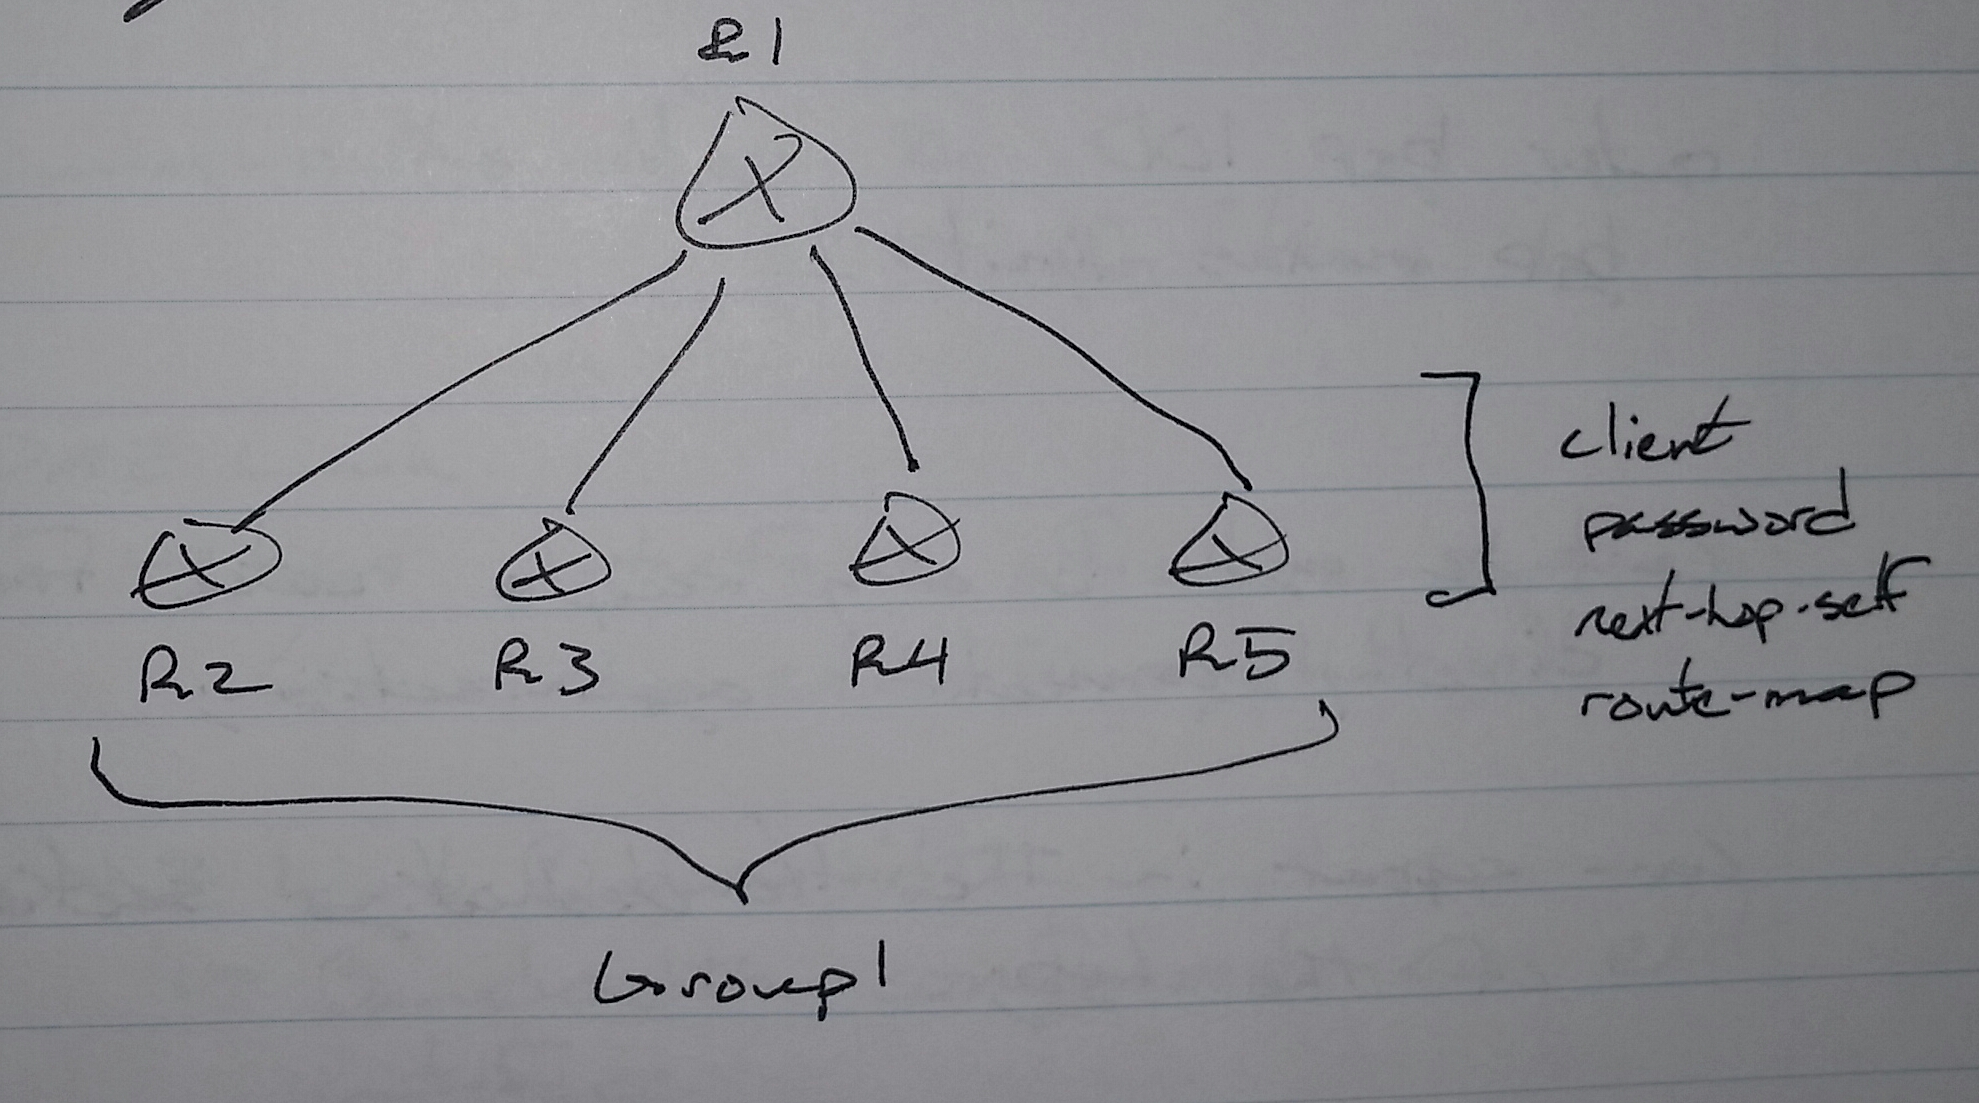 R1
R2 R3 R4 R5
client
password
next-hop-self
route-map
Group1